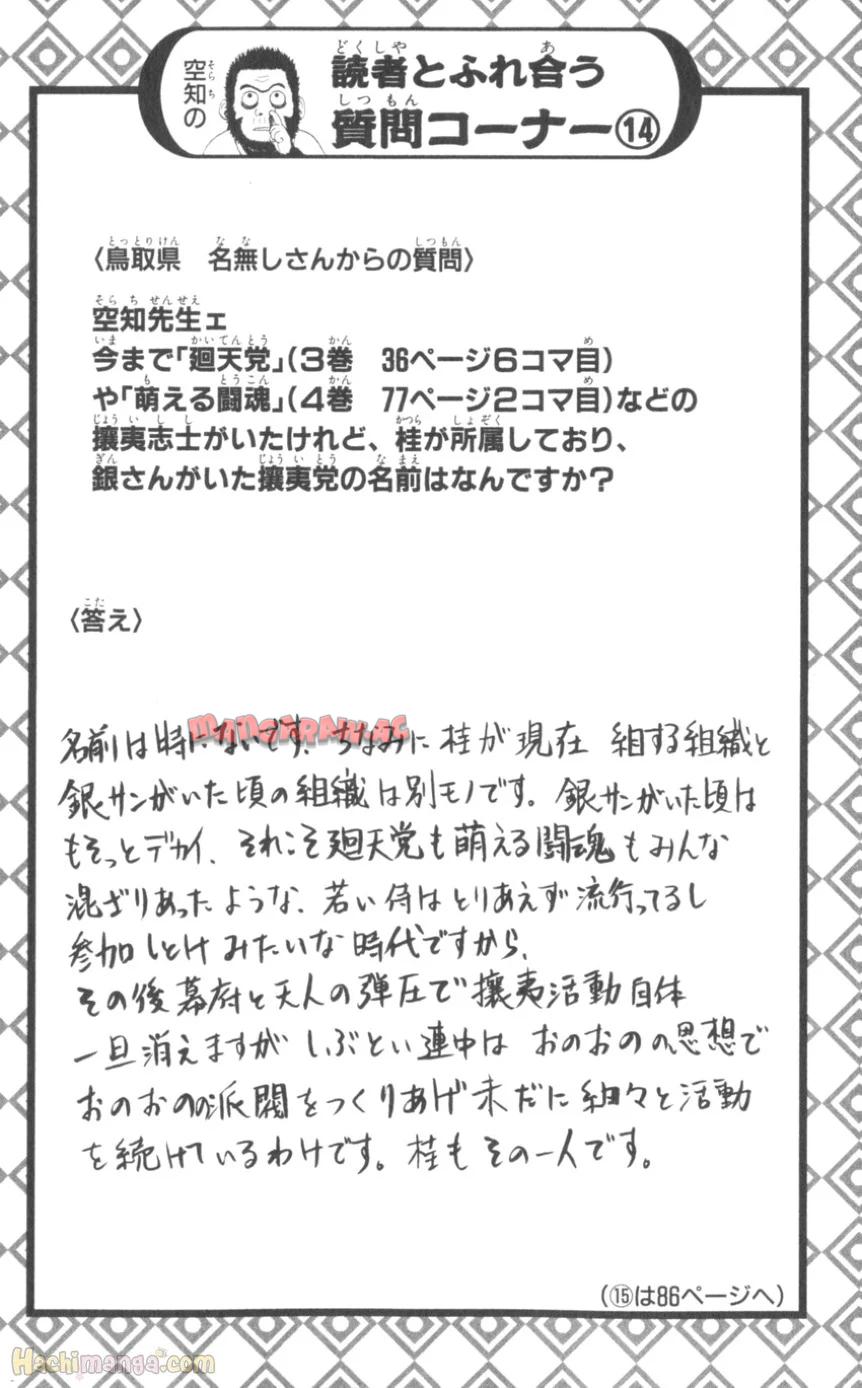 空知の
読者とふれ合う
質問コーナー⑭
〈鳥取県　名無しさんからの質問〉
空知先生ェ
今まで「廻天党」(3巻　36ページ6コマ目)
や「萌える闘魂」(4巻　77ページ2コマ目)などの
攘夷志士がいたけれど、桂が所属しており、
銀さんがいた攘夷党の名前はなんですか?
〈答え〉
名前は特にないです。ちなみに桂が現在 組する組織と
銀サンがいた頃の組織は別モノです。銀サンがいた頃は
もそっとデカイ、それこそ廻天党も萌える闘魂もみんな
混ざりあったような、若い侍はとりあえず流行ってるし
参加しとけみたいな時代ですから、
その後幕府と天人の弾圧で攘夷活動自体
一旦消えますが しぶとい連中は おのおのの思想で
おのおのの派閥をつくりあげ未だに細々と活動
を続けているわけです。桂もその一人です。
(⑮は86ページへ)
MANGARAW.AC
Hachimanga.com